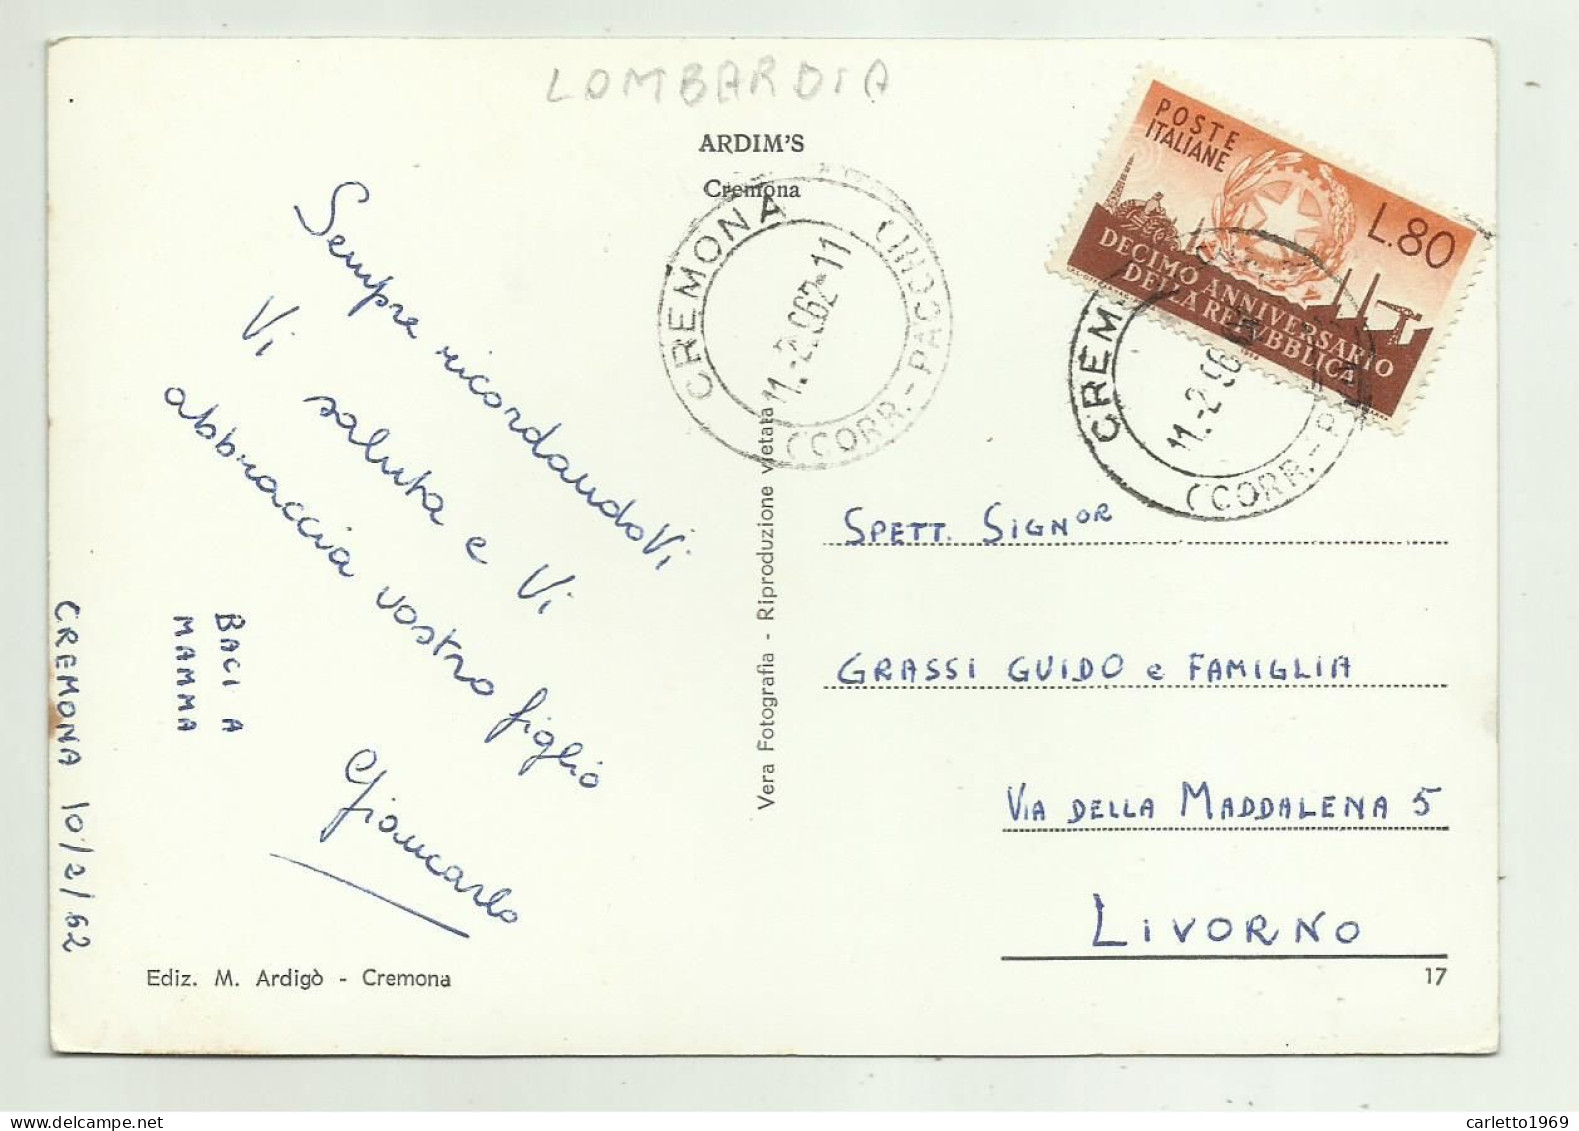 LOMBARDIA
ARDIM'S
Cremona
POSTE
ITALIANE
L.80
DECIMO ANNIVERSARIO
DELLA REPVBBLICA
CREMONA
11.-2.1962-11
(CORR.-PACCHI)
CREM
11.-2.196
(CORR.-PA
Sempre ricordandoVi
Vi saluta e Vi
abbraccia vostro figlio
Giancarlo
BACI A
MAMMA
CREMONA 10/2/62
Vera Fotografia - Riproduzione vietata
SPETT. SIGNOR
GRASSI GUIDO e FAMIGLIA
VIA DELLA MADDALENA 5
LIVORNO
Ediz. M. Ardigò - Cremona
17
carletto1969